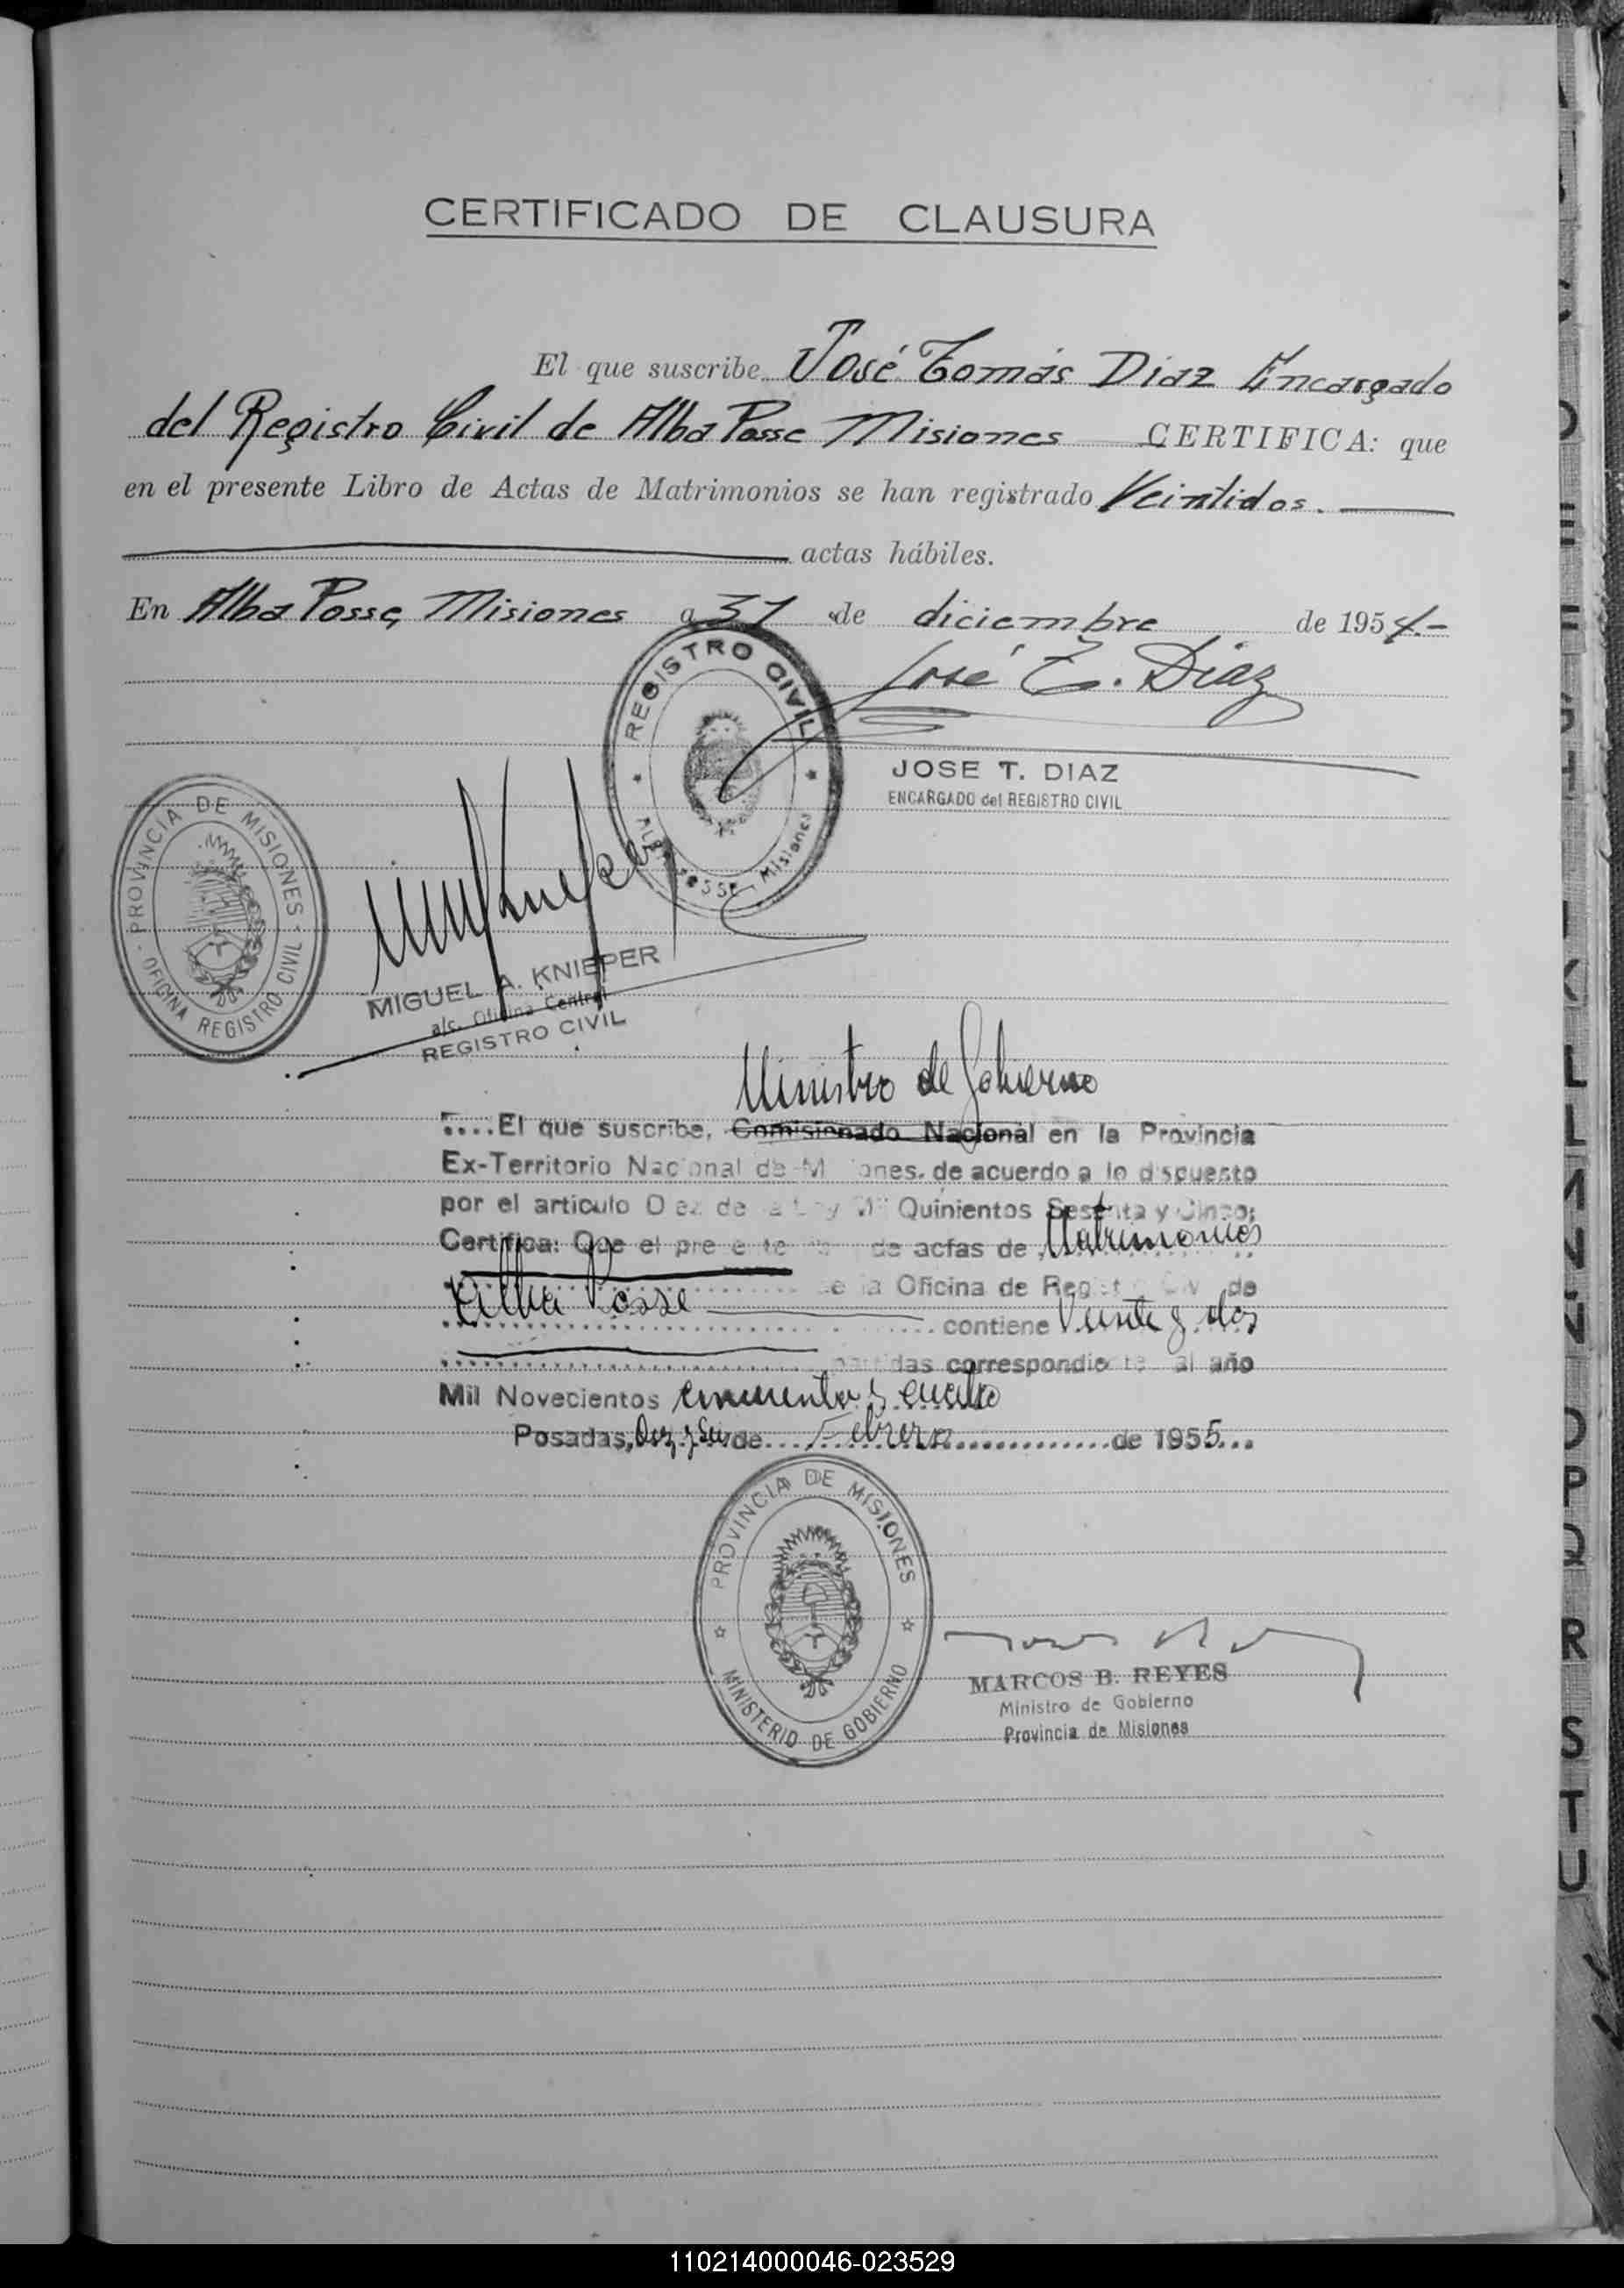 CERTIFICADO DE CLAUSURA
El que suscribe José Tomás Diaz Encargado
del Registro Civil de Alba Posse Misiones CERTIFICA: que
en el presente Libro de Actas de Matrimonios se han registrado Veintidos.
actas hábiles.
En Alba Posse, Misiones a 31 de diciembre de 1954.-
José T. Diaz
REGISTRO CIVIL
ALBA POSSE Misiones
JOSE T. DIAZ
ENCARGADO del REGISTRO CIVIL
PROVINCIA DE MISIONES
OFICINA REGISTRO CIVIL
MIGUEL A. KNIEPER
a/c. Oficina Central
REGISTRO CIVIL
Ministro de Gobierno
El que suscribe, Comisionado Nacional en la Provincia
Ex-Territorio Nacional de Misiones, de acuerdo a lo dispuesto
por el artículo Diez de la Ley Mil Quinientos Sesenta y Cinco;
Certifica: Que el presente de actas de Matrimonios
de la Oficina de Registro Civil de
Alba Posse contiene Veinte y dos
partidas correspondiente al año
Mil Novecientos cincuenta y cuatro
Posadas, Diez y Seis de Febrero de 1955...
PROVINCIA DE MISIONES
MINISTERIO DE GOBIERNO
MARCOS B. REYES
Ministro de Gobierno
Provincia de Misiones
O
P
Q
R
S
T
U
110214000046-023529